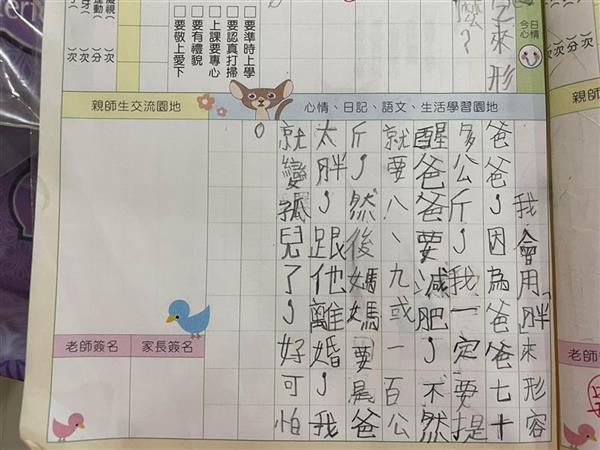 今日
心情
來形
麼？
□要準時上學
□要認真打掃
□上課要專心
□要有禮貌
□要敬上愛下
運動（ ）次
（ ）次
（ ）分
（ ）次
心情、日記、語文、生活學習園地
親師生交流園地
我會用「胖」來形容
爸爸，因為爸爸七十
多公斤，我一定要提
醒爸爸要減肥，不然
就要八、九或一百公
斤，然後媽媽要爸
太胖，跟他離婚，我
就變孤兒了，好可怕
。
家長簽名
老師簽名
親師
老師